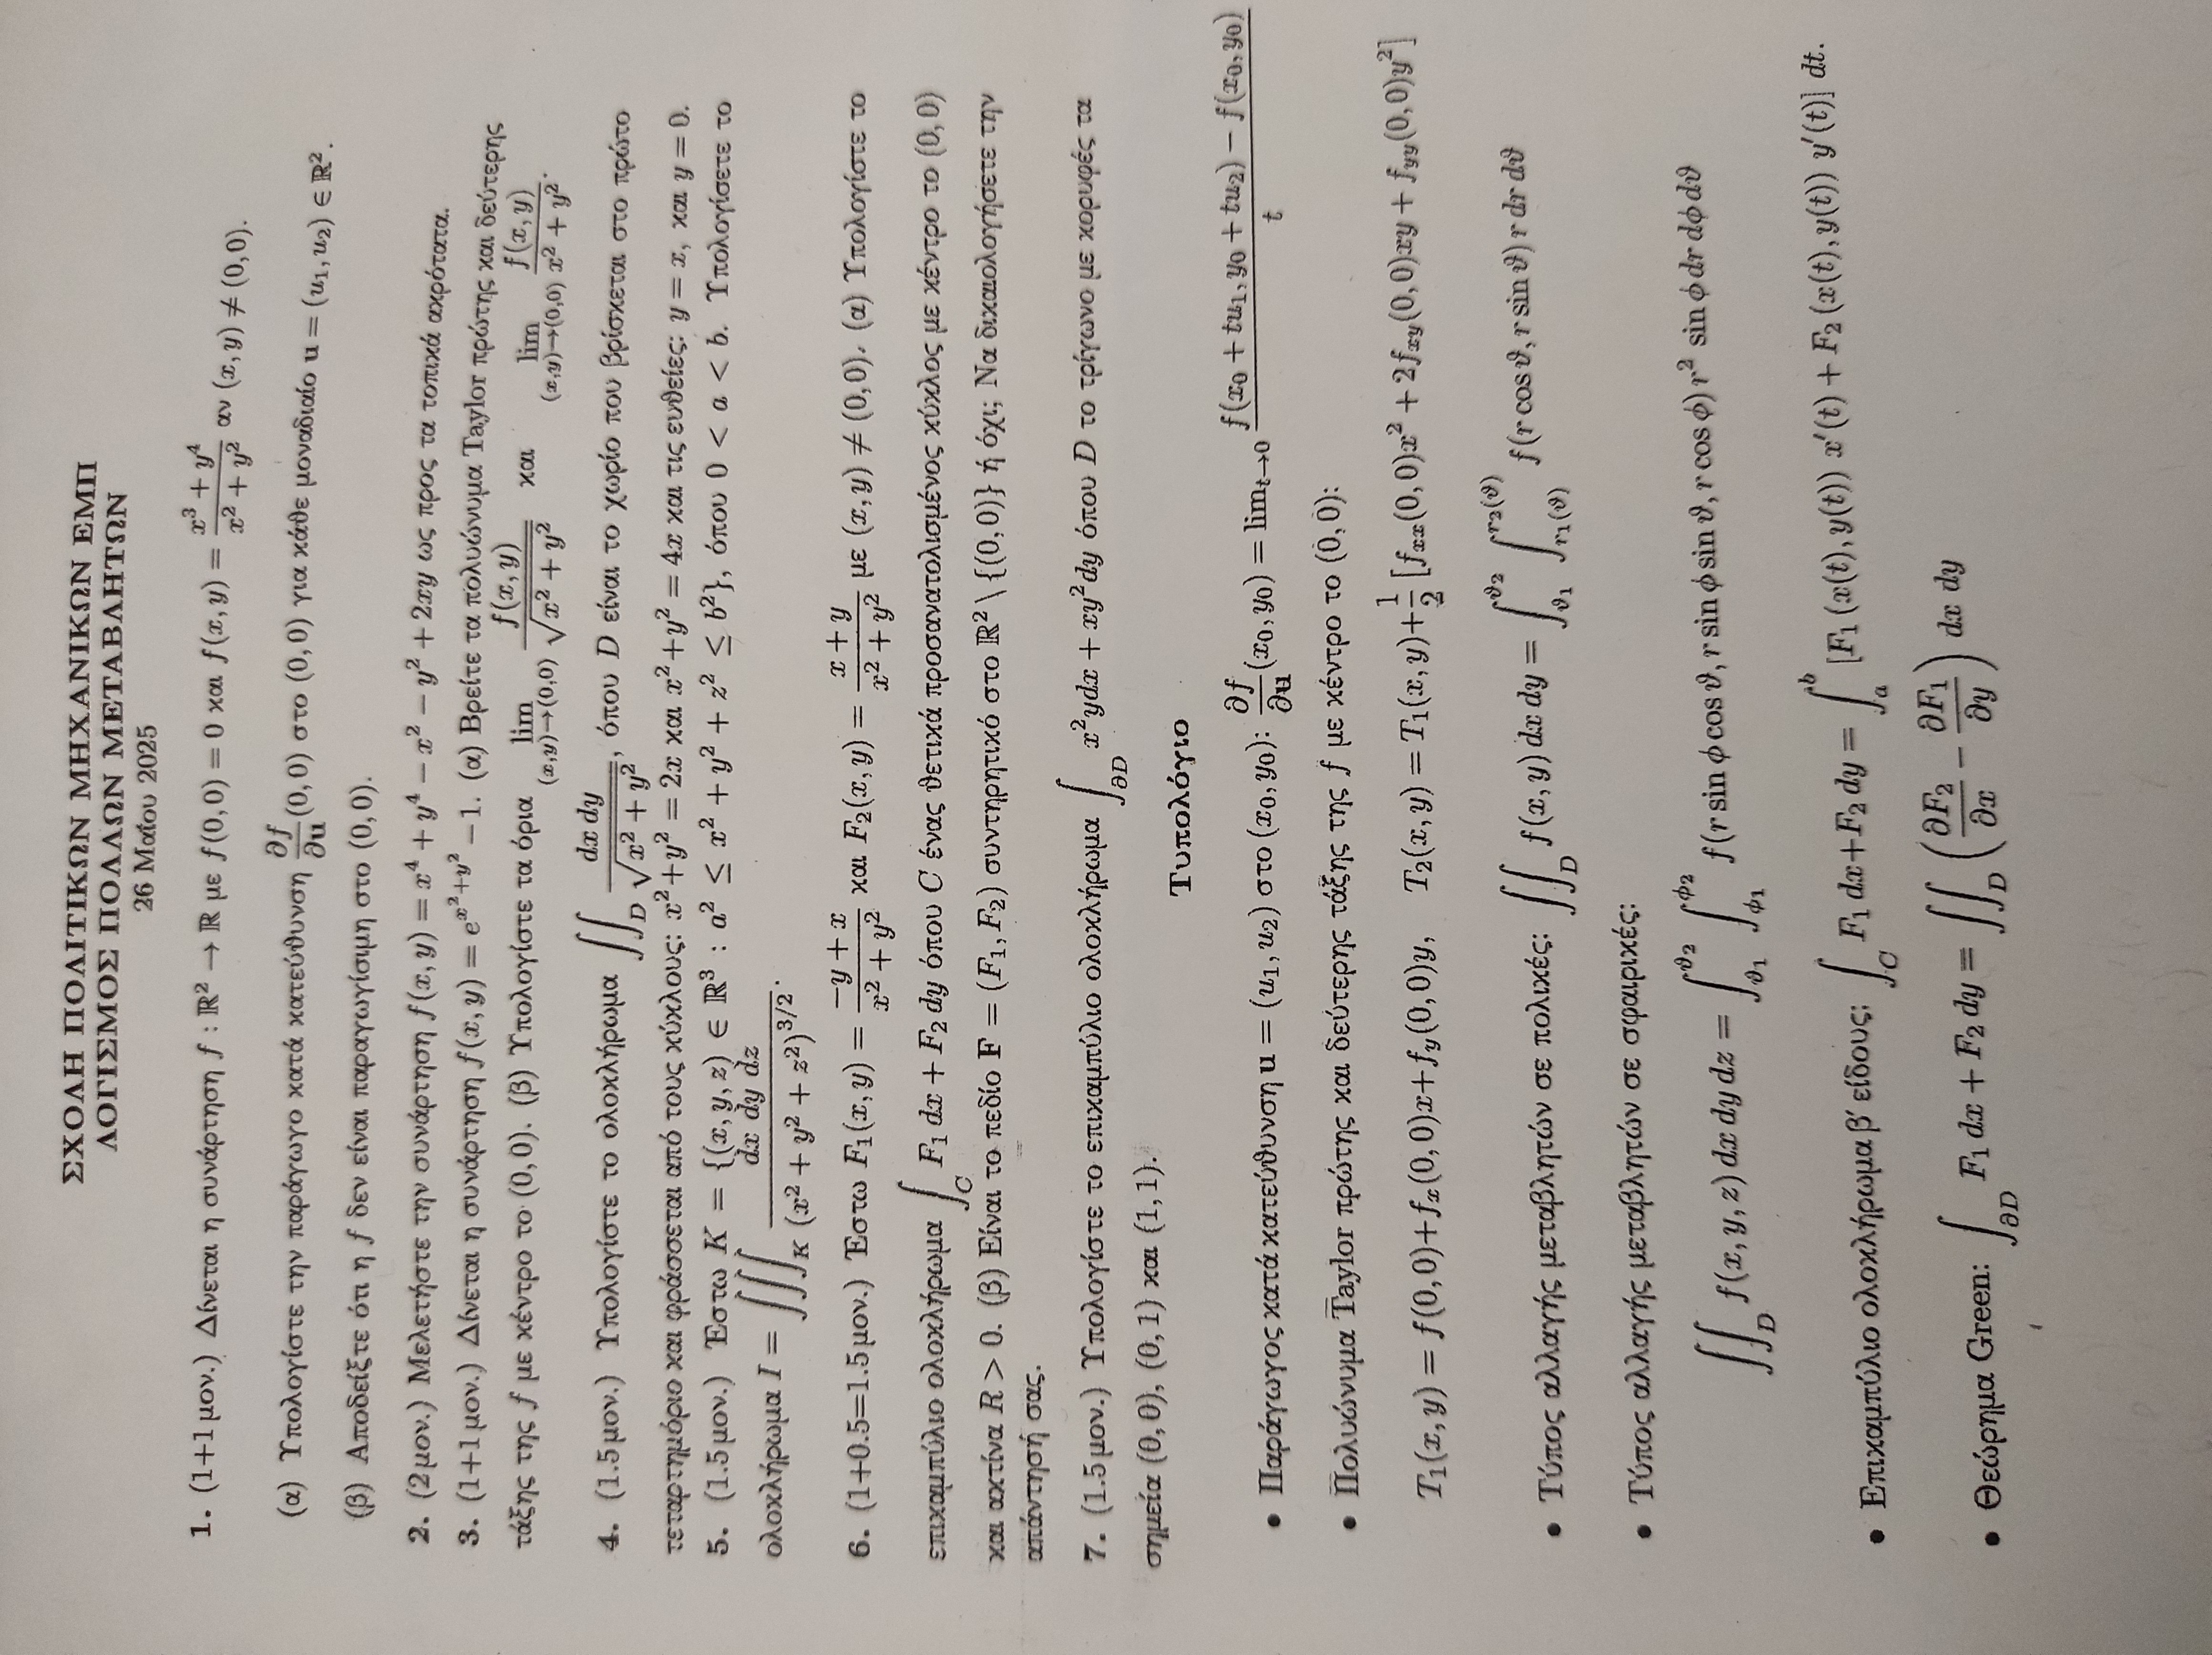 ΣΧΟΛΗ ΠΟΛΙΤΙΚΩΝ ΜΗΧΑΝΙΚΩΝ ΕΜΠ
ΛΟΓΙΣΜΟΣ ΠΟΛΛΩΝ ΜΕΤΑΒΛΗΤΩΝ
26 Μαΐου 2025
1. (1+1 μον.) Δίνεται η συνάρτηση $f : \mathbb{R}^2 \to \mathbb{R}$ με $f(0,0) = 0$ και $f(x,y) = \dfrac{x^3 + y^4}{x^2 + y^2}$ αν $(x,y) \neq (0,0)$.
(α) Υπολογίστε την παράγωγο κατά κατεύθυνση $\dfrac{\partial f}{\partial \mathbf{u}}(0,0)$ στο $(0,0)$ για κάθε μοναδιαίο $\mathbf{u} = (u_1, u_2) \in \mathbb{R}^2$.
(β) Αποδείξτε ότι η $f$ δεν είναι παραγωγίσιμη στο $(0,0)$.
2. (2 μον.) Μελετήστε την συνάρτηση $f(x,y) = x^4 + y^4 - x^2 - y^2 + 2xy$ ως προς τα τοπικά ακρότατα.
3. (1+1 μον.) Δίνεται η συνάρτηση $f(x,y) = e^{x^2+y^2} - 1$. (α) Βρείτε τα πολυώνυμα Taylor πρώτης και δεύτερης
τάξης της $f$ με κέντρο το $(0,0)$. (β) Υπολογίστε τα όρια $\lim_{(x,y)\to(0,0)} \dfrac{f(x,y)}{\sqrt{x^2+y^2}}$ και $\lim_{(x,y)\to(0,0)} \dfrac{f(x,y)}{x^2+y^2}$.
4. (1.5 μον.) Υπολογίστε το ολοκλήρωμα $\iint_D \dfrac{dx\,dy}{\sqrt{x^2+y^2}}$, όπου $D$ είναι το χωρίο που βρίσκεται στο πρώτο
τεταρτημόριο και φράσσεται από τους κύκλους: $x^2+y^2 = 2x$ και $x^2+y^2 = 4x$ και τις ευθείες: $y = x$, και $y = 0$.
5. (1.5 μον.) Έστω $K = \{(x,y,z) \in \mathbb{R}^3 : a^2 \leq x^2 + y^2 + z^2 \leq b^2\}$, όπου $0 < a < b$. Υπολογίσετε το
ολοκλήρωμα $I = \iiint_K \dfrac{dx\,dy\,dz}{(x^2+y^2+z^2)^{3/2}}$.
6. (1+0.5=1.5 μον.) Έστω $F_1(x,y) = \dfrac{-y+x}{x^2+y^2}$ και $F_2(x,y) = \dfrac{x+y}{x^2+y^2}$ με $(x,y) \neq (0,0)$. (α) Υπολογίστε το
επικαμπύλιο ολοκλήρωμα $\int_C F_1\,dx + F_2\,dy$ όπου $C$ ένας θετικά προσανατολισμένος κύκλος με κέντρο το $(0,0)$
και ακτίνα $R > 0$. (β) Είναι το πεδίο $\mathbf{F} = (F_1, F_2)$ συντηρητικό στο $\mathbb{R}^2 \setminus \{(0,0)\}$ ή όχι; Να δικαιολογήσετε την
απάντησή σας.
7. (1.5 μον.) Υπολογίστε το επικαμπύλιο ολοκλήρωμα $\int_{\partial D} x^2 y dx + xy^2 dy$ όπου $D$ το τρίγωνο με κορυφές τα
σημεία $(0,0)$, $(0,1)$ και $(1,1)$.
Τυπολόγιο
• Παράγωγος κατά κατεύθυνση $\mathbf{u} = (u_1, u_2)$ στο $(x_0, y_0)$: $\dfrac{\partial f}{\partial \mathbf{u}}(x_0,y_0) = \lim_{t\to 0} \dfrac{f(x_0 + tu_1, y_0 + tu_2) - f(x_0,y_0)}{t}$
• Πολυώνυμα Taylor πρώτης και δεύτερης τάξης της $f$ με κέντρο το $(0,0)$:
$T_1(x,y) = f(0,0)+f_x(0,0)x+f_y(0,0)y, \quad T_2(x,y) = T_1(x,y)+\dfrac{1}{2}[f_{xx}(0,0)x^2 + 2f_{xy}(0,0)xy + f_{yy}(0,0)y^2]$
• Τύπος αλλαγής μεταβλητών σε πολικές: $\iint_D f(x,y)\,dx\,dy = \int_{\vartheta_1}^{\vartheta_2} \int_{r_1(\vartheta)}^{r_2(\vartheta)} f(r\cos\vartheta, r\sin\vartheta)\,r\,dr\,d\vartheta$
• Τύπος αλλαγής μεταβλητών σε σφαιρικές:
$\iint_D f(x,y,z)\,dx\,dy\,dz = \int_{\vartheta_1}^{\vartheta_2} \int_{\phi_1}^{\phi_2} f(r\sin\phi\cos\vartheta, r\sin\phi\sin\vartheta, r\cos\phi)\,r^2\sin\phi\,dr\,d\phi\,d\vartheta$
• Επικαμπύλιο ολοκλήρωμα β′ είδους: $\int_C F_1\,dx+F_2\,dy = \int_a^b [F_1(x(t),y(t))\,x'(t) + F_2(x(t),y(t))\,y'(t)]\,dt.$
• Θεώρημα Green: $\int_{\partial D} F_1\,dx + F_2\,dy = \iint_D \left(\dfrac{\partial F_2}{\partial x} - \dfrac{\partial F_1}{\partial y}\right) dx\,dy$